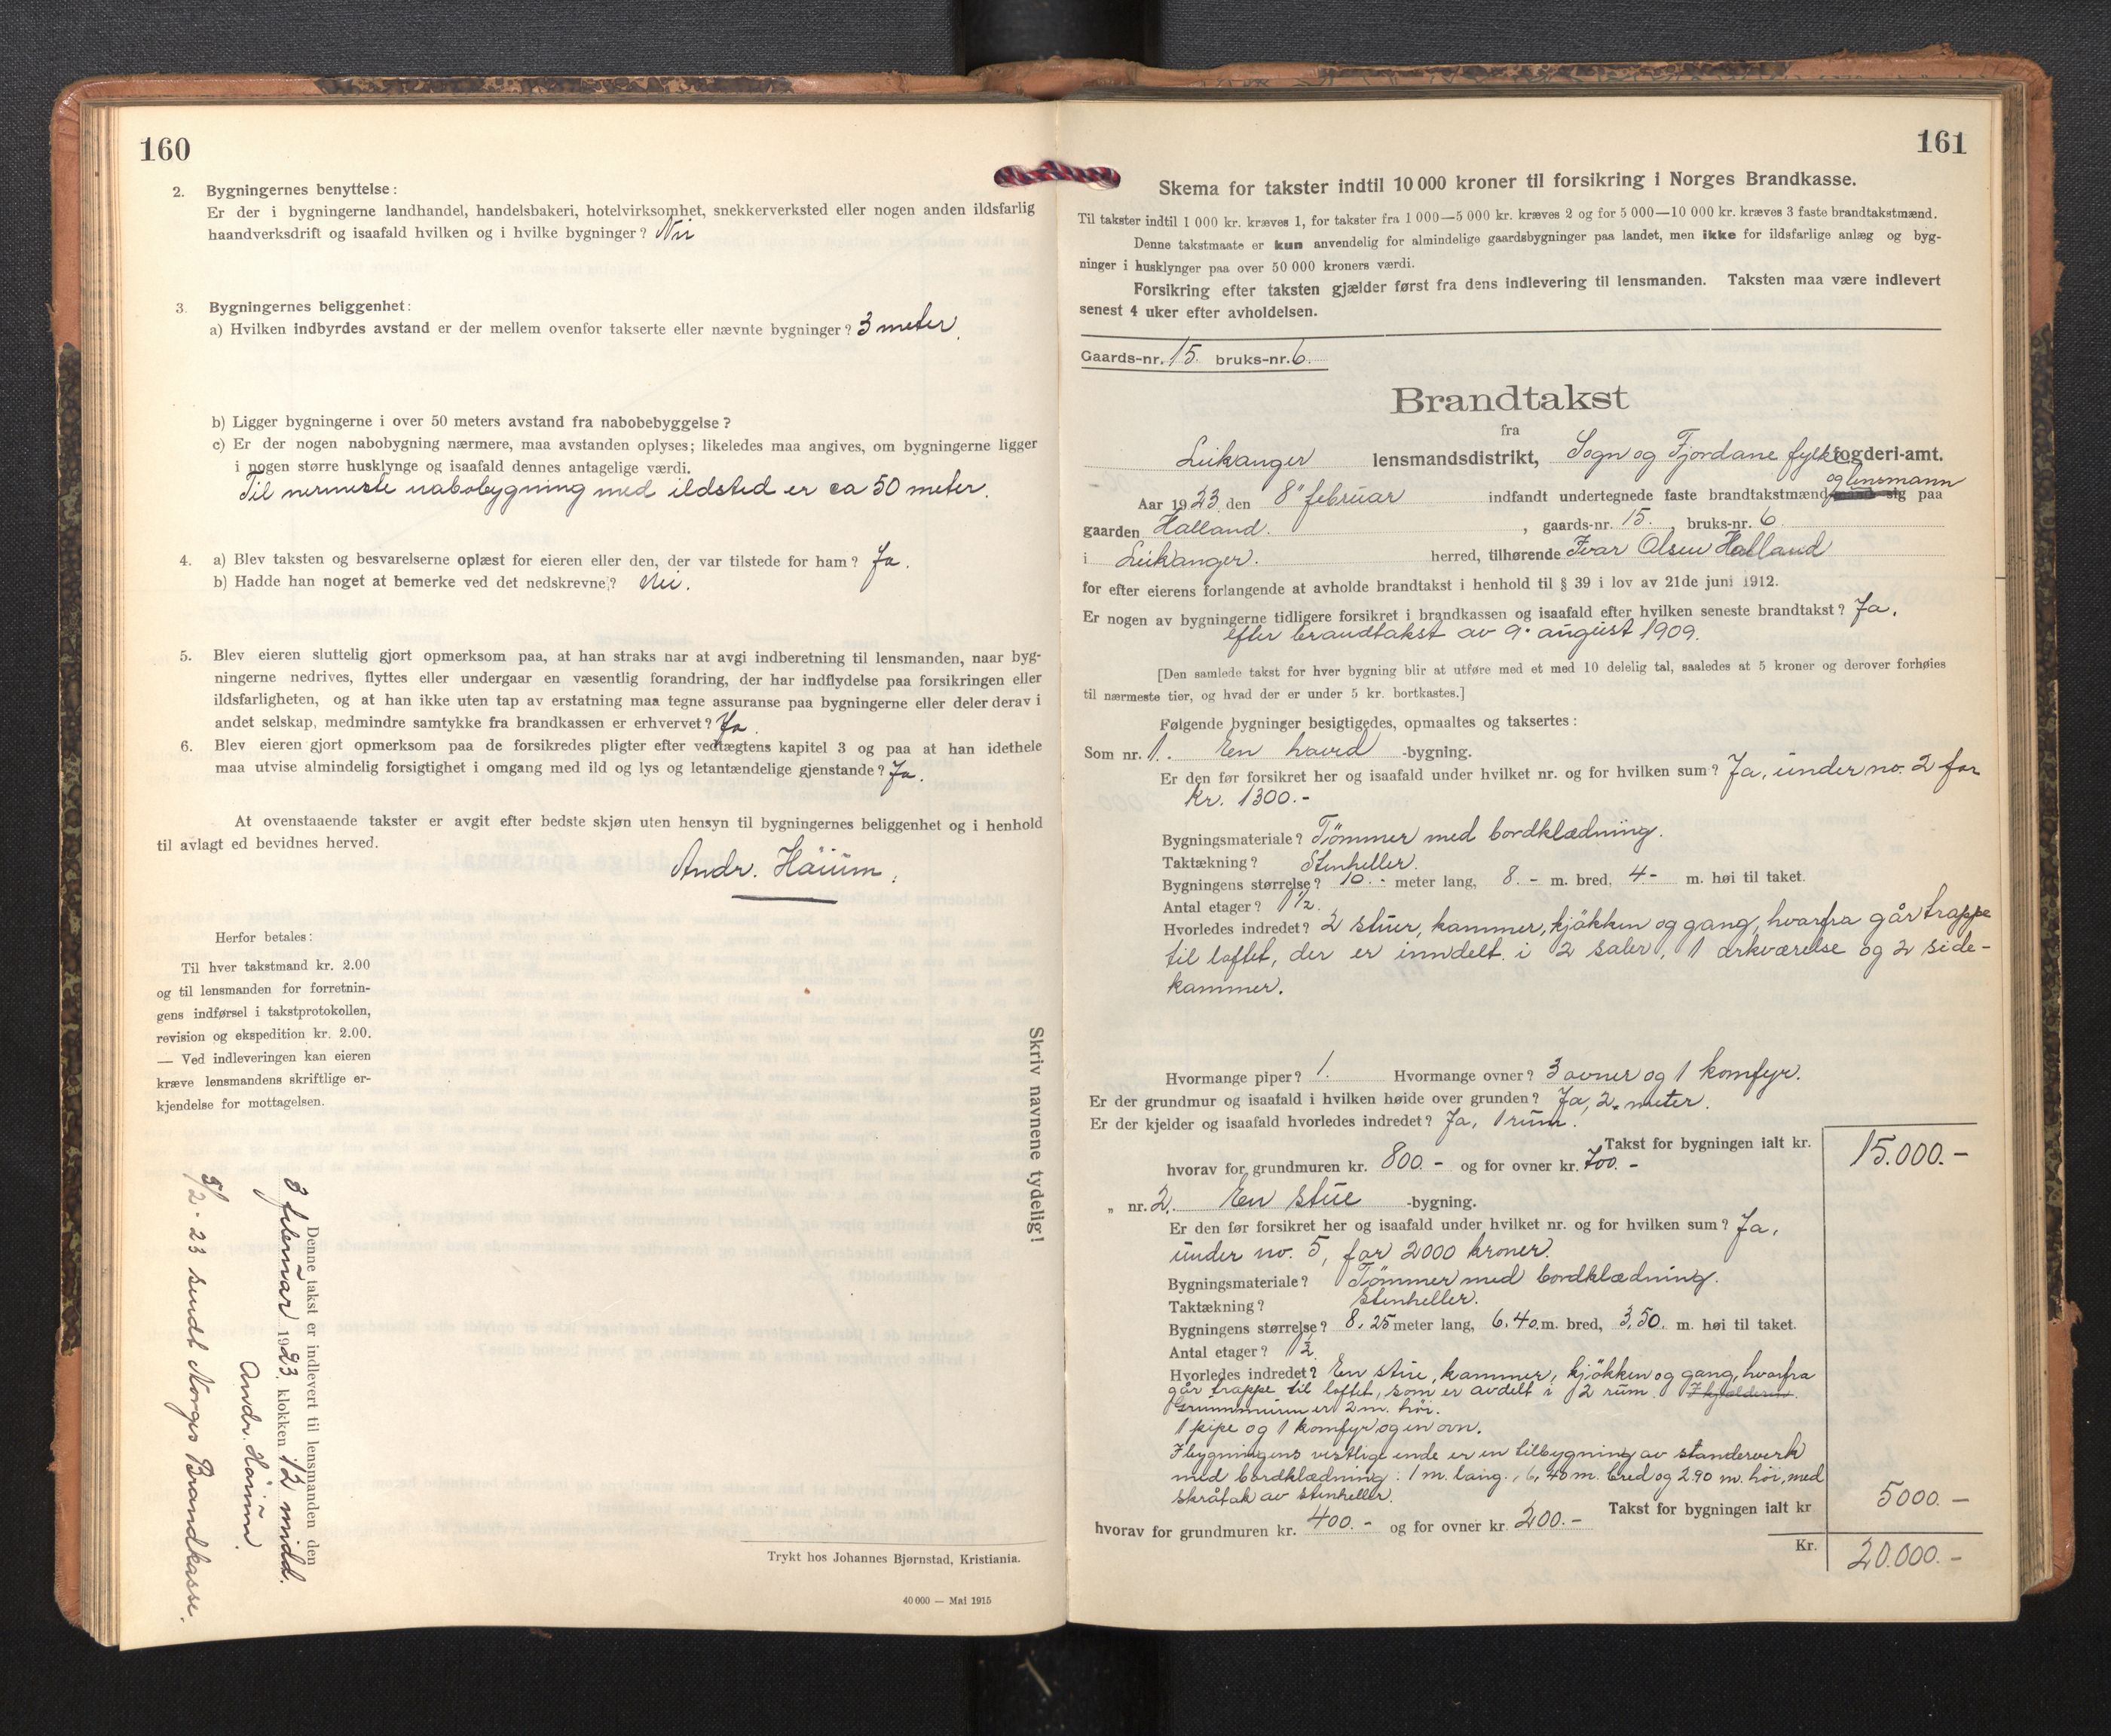 160
2. Bygningernes benyttelse:
Er der i bygningerne landhandel, handelsbakeri, hotelvirksomhet, snekkerverksted eller nogen anden ildsfarlig
haandverksdrift og isaafald hvilken og i hvilke bygninger? Nei
3. Bygningernes beliggenhet:
a) Hvilken indbyrdes avstand er der mellem ovenfor takserte eller nævnte bygninger? 3 meter.
b) Ligger bygningerne i over 50 meters avstand fra nabobebyggelse?
c) Er der nogen nabobygning nærmere, maa avstanden oplyses; likeledes maa angives, om bygningerne ligger
i nogen større husklynge og isaafald dennes antagelige værdi.
Til nermeste nabobygning med ildsted er ca 50 meter.
4. a) Blev taksten og besvarelserne oplæst for eieren eller den, der var tilstede for ham? Ja.
b) Hadde han noget at bemerke ved det nedskrevne? Nei.
5. Blev eieren sluttelig gjort opmerksom paa, at han straks har at avgi indberetning til lensmanden, naar byg-
ningerne nedrives, flyttes eller undergaar en væsentlig forandring, der har indflydelse paa forsikringen eller
ildsfarligheten, og at han ikke uten tap av erstatning maa tegne assuranse paa bygningerne eller deler derav i
andet selskap, medmindre samtykke fra brandkassen er erhvervet? Ja.
6. Blev eieren gjort opmerksom paa de forsikredes pligter efter vedtægtens kapitel 3 og paa at han idethele
maa utvise almindelig forsigtighet i omgang med ild og lys og letantændelige gjenstande? Ja.
At ovenstaaende takster er avgit efter bedste skjøn uten hensyn til bygningernes beliggenhet og i henhold
til avlagt ed bevidnes herved.
Andr. Häium.
Herfor betales:
Til hver takstmand kr. 2.00
og til lensmanden for forretnin-
gens indførsel i takstprotokollen,
revision og ekspedition kr. 2.00.
— Ved indleveringen kan eieren
kræve lensmandens skriftlige er-
kjendelse for mottagelsen.
Skriv navnene tydelig!
Denne takst er indlevert til lensmanden den
8 februar 1923, klokken 12 midd.
Andr. Häium.
8/2. 23 sendt Norges Brandkasse.
Trykt hos Johannes Bjørnstad, Kristiania.
40 000 — Mai 1915
161
Skema for takster indtil 10 000 kroner til forsikring i Norges Brandkasse.
Til takster indtil 1 000 kr. kræves 1, for takster fra 1 000—5 000 kr. kræves 2 og for 5 000—10 000 kr. kræves 3 faste brandtakstmænd.
Denne takstmaate er kun anvendelig for almindelige gaardsbygninger paa landet, men ikke for ildsfarlige anlæg og byg-
ninger i husklynger paa over 50 000 kroners værdi.
Forsikring efter taksten gjælder først fra dens indlevering til lensmanden. Taksten maa være indlevert
senest 4 uker efter avholdelsen.
Gaards-nr. 15. bruks-nr. 6.
Brandtakst
fra
Leikanger lensmandsdistrikt, Sogn og Fjordane fylke fogderi-amt.
Aar 1923 den 8' februar indfandt undertegnede faste brandtakstmænd og lensmann sig paa
gaarden Halland. , gaards-nr. 15. , bruks-nr. 6
i Leikanger. herred, tilhørende Ivar Olsen Halland
for efter eierens forlangende at avholde brandtakst i henhold til § 39 i lov av 21de juni 1912.
Er nogen av bygningerne tidligere forsikret i brandkassen og isaafald efter hvilken seneste brandtakst? Ja,
efter brandtakst av 9. august 1909.
[Den samlede takst for hver bygning blir at utføre med et med 10 delelig tal, saaledes at 5 kroner og derover forhøies
til nærmeste tier, og hvad der er under 5 kr. bortkastes.]
Følgende bygninger besigtigedes, opmaaltes og taksertes:
Som nr. 1. En hoved -bygning.
Er den før forsikret her og isaafald under hvilket nr. og for hvilken sum? Ja, under no. 2 for
kr. 1300.-
Bygningsmateriale? Tömmer med bordklædning.
Taktækning? Stenheller.
Bygningens størrelse? 10.- meter lang, 8.- m. bred, 4.- m. høi til taket.
Antal etager? 1½.
Hvorledes indredet? 2 stuer, kammer, kjökken og gang, hvorfra går trappe
til loftet, der er inndelt i 2 saler, 1 arkværelse og 2 side-
kammer.
Hvormange piper? 1. Hvormange ovner? 3 ovner og 1 komfyr.
Er der grundmur og isaafald i hvilken høide over grunden? Ja, 2. meter.
Er der kjelder og isaafald hvorledes indredet? Ja, 1 rum.
Takst for bygningen ialt kr. 15.000.-
hvorav for grundmuren kr. 800.- og for ovner kr. 700.-
„ nr. 2. En stue -bygning.
Er den før forsikret her og isaafald under hvilket nr. og for hvilken sum? Ja,
under no. 5, for 2000 kroner.
Bygningsmateriale? Tömmer med bordklædning.
Taktækning? Stenheller.
Bygningens størrelse? 8,25 meter lang, 6,40 m. bred, 3,50. m. høi til taket.
Antal etager? 1½.
Hvorledes indredet? En stue, kammer, kjökken og gang, hvorfra
går trappe til loftet, som er avdelt i 2 rum. I kjælderen.
Grunnmuren er 2 m. höi.
1 pipe og 1 komfyr og en ovn.
I bygningens vestlige ende er en tilbygning av standerverk
med bordklædning: 1 m. lang., 6,40 m. bred og 2.90 m. höi, med
skråtak av stenheller.
Takst for bygningen ialt kr 5000.-
hvorav for grundmuren kr. 400.- og for ovner kr. 200.-
Kr. 20.000.-